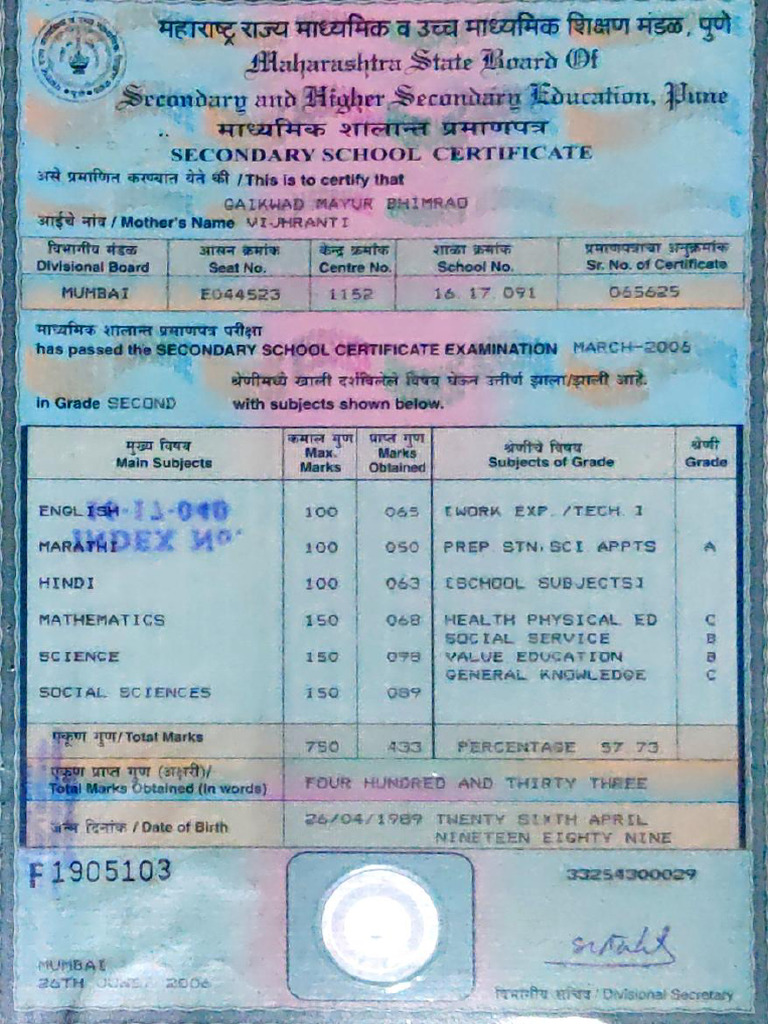 महाराष्ट्र राज्य माध्यमिक व उच्च माध्यमिक शिक्षण मंडळ, पुणे
Maharashtra State Board Of
Secondary and Higher Secondary Education, Pune
माध्यमिक शालान्त प्रमाणपत्र
SECONDARY SCHOOL CERTIFICATE
असे प्रमाणित करण्यात येते की / This is to certify that
GAIKWAD MAYUR BHIMRAO
आईचे नांव / Mother's Name VIJHRANTI
विभागीय मंडळ आसन क्रमांक केन्द्र क्रमांक शाळा क्रमांक प्रमाणपत्राचा अनुक्रमांक
Divisional Board Seat No. Centre No. School No. Sr. No. of Certificate
MUMBAI E044523 1152 16.17.091 065625
माध्यमिक शालान्त प्रमाणपत्र परीक्षा
has passed the SECONDARY SCHOOL CERTIFICATE EXAMINATION MARCH-2006
श्रेणीमध्ये खाली दर्शविलेले विषय घेऊन उत्तीर्ण झाला/झाली आहे.
in Grade SECOND with subjects shown below.
मुख्य विषय कमाल गुण प्राप्त गुण श्रेणीचे विषय श्रेणी
Main Subjects Max. Marks Marks Obtained Subjects of Grade Grade
ENGLISH 100 065 [WORK EXP./TECH.]
INDEX No.
MARATHI 100 050 PREP STN.SCI APPTS A
HINDI 100 063 [SCHOOL SUBJECTS]
MATHEMATICS 150 068 HEALTH PHYSICAL ED C
SOCIAL SERVICE B
SCIENCE 150 098 VALUE EDUCATION B
GENERAL KNOWLEDGE C
SOCIAL SCIENCES 150 089
एकूण गुण/Total Marks 750 433 PERCENTAGE 57.73
एकूण प्राप्त गुण (अक्षरी)/
Total Marks Obtained (in words) FOUR HUNDRED AND THIRTY THREE
जन्म दिनांक / Date of Birth 26/04/1989 TWENTY SIXTH APRIL
NINETEEN EIGHTY NINE
F1905103
33254300029
MUMBAI
26TH JUNE, 2006
विभागीय सचिव / Divisional Secretary